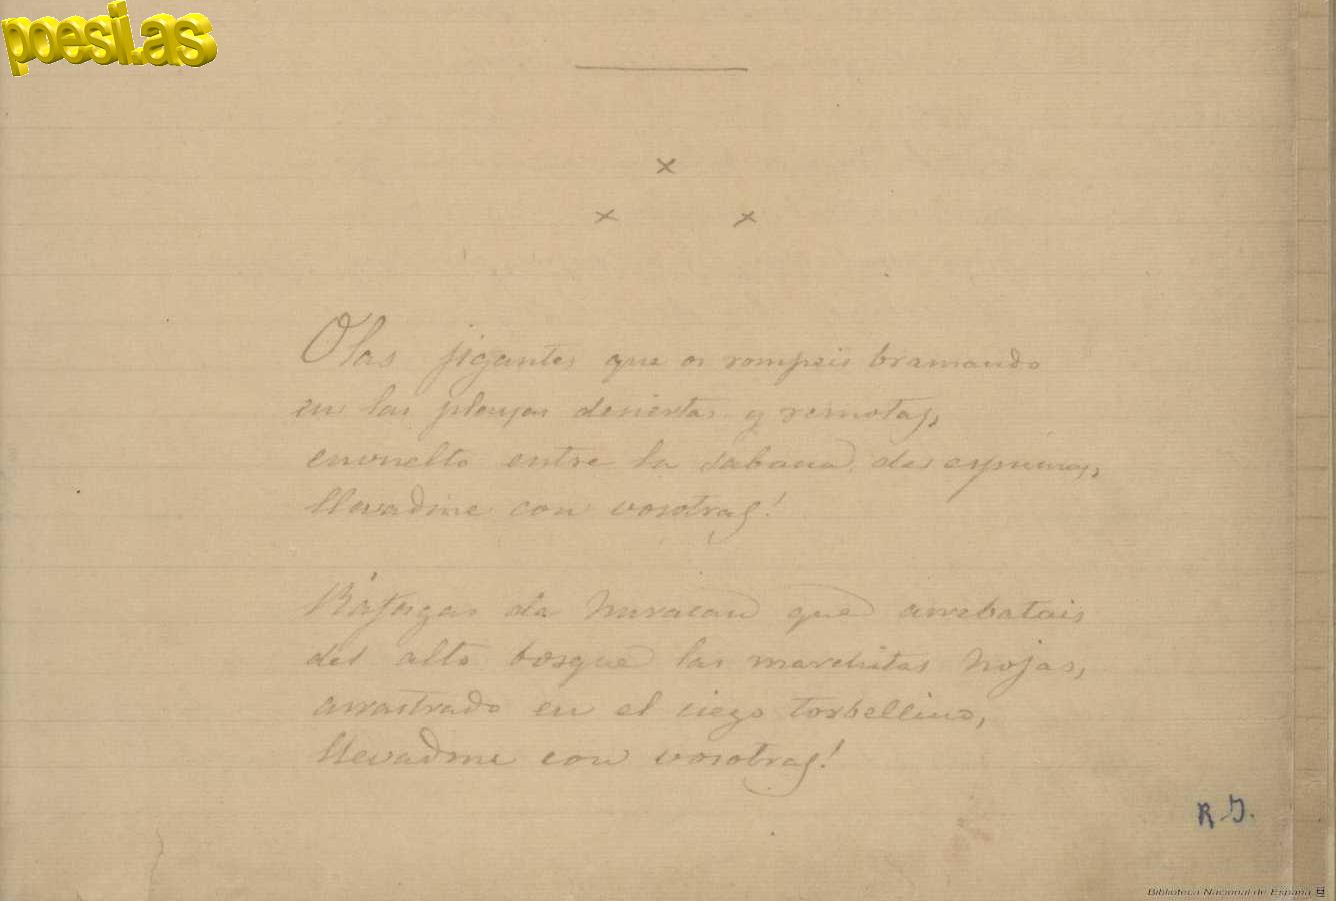 poesi.as
Olas jigantes que os rompeis bramando
en las playas desiertas y remotas,
envuelto entre la sabana de espumas,
llevadme con vosotras!
Ráfagas de huracan que arrebatais
del alto bosque las marchitas hojas,
arrastrado en el ciego torbellino,
llevadme con vosotras!
Biblioteca Nacional de España